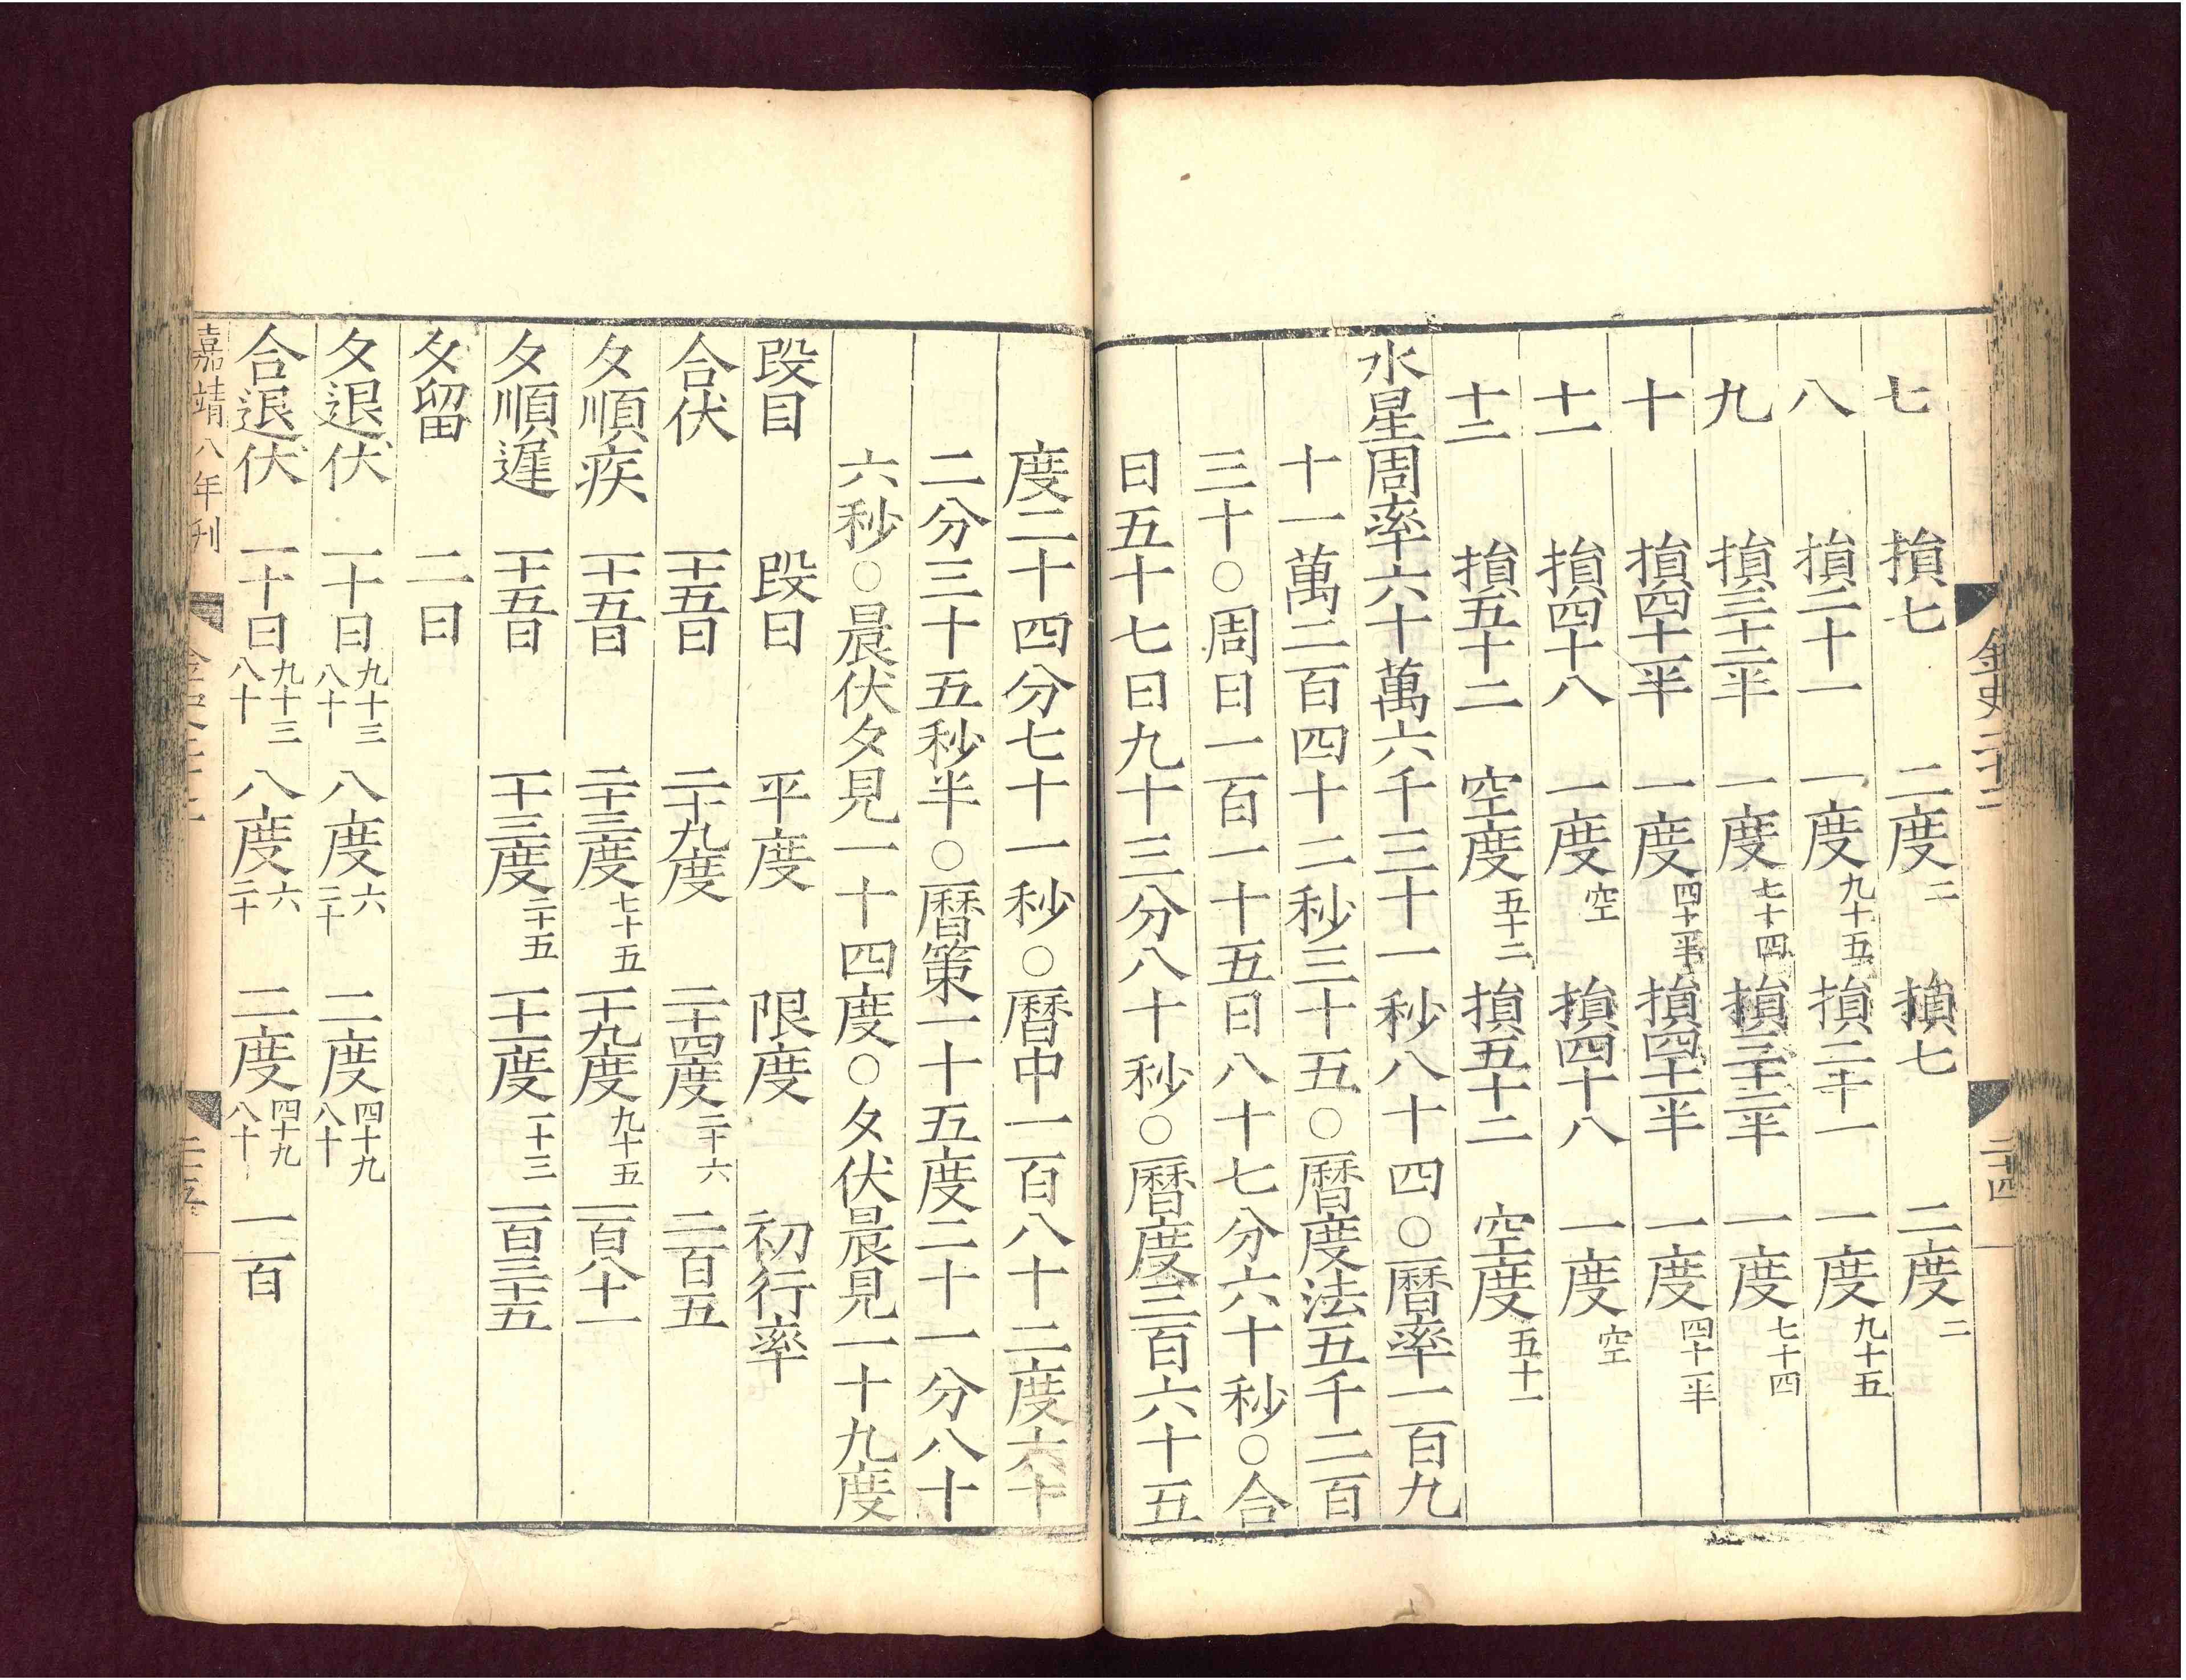 金史二十二
二十四
七 損七 二度二 損七 二度二
八 損二十一 一度九十五 損二十一 一度九十五
九 損三十二半 一度七十四 損三十二半 一度七十四
十 損四十一半 一度四十一半 損四十一半 一度四十一半
十一 損四十八 一度空 損四十八 一度空
十二 損五十二 空度五十二 損五十二 空度五十一
水星周率六十萬六千三十一秒八十四○曆率一百九
十一萬二百四十二秒三十五○曆度法五千二百
三十○周日一百一十五日八十七分六十秒○合
日五十七日九十三分八十秒○曆度三百六十五
度二十四分七十一秒○曆中一百八十二度六十
二分三十五秒半○曆策一十五度二十一分八十
六秒○晨伏夕見一十四度○夕伏晨見一十九度
段目 段日 平度 限度 初行率
合伏 十五日 二十九度 二十四度二十六 二百五
夕順疾 十五日 二十三度七十五 一十九度九十五 一百八十一
夕順遲 十五日 一十三度二十五 一十一度一十三 一百三十五
夕留 二日
夕退伏 一十日九十三八十 八度六二十 二度四十九八十
合退伏 一十日九十三八十 八度六二十 二度四十九八十 一百
嘉靖八年刊